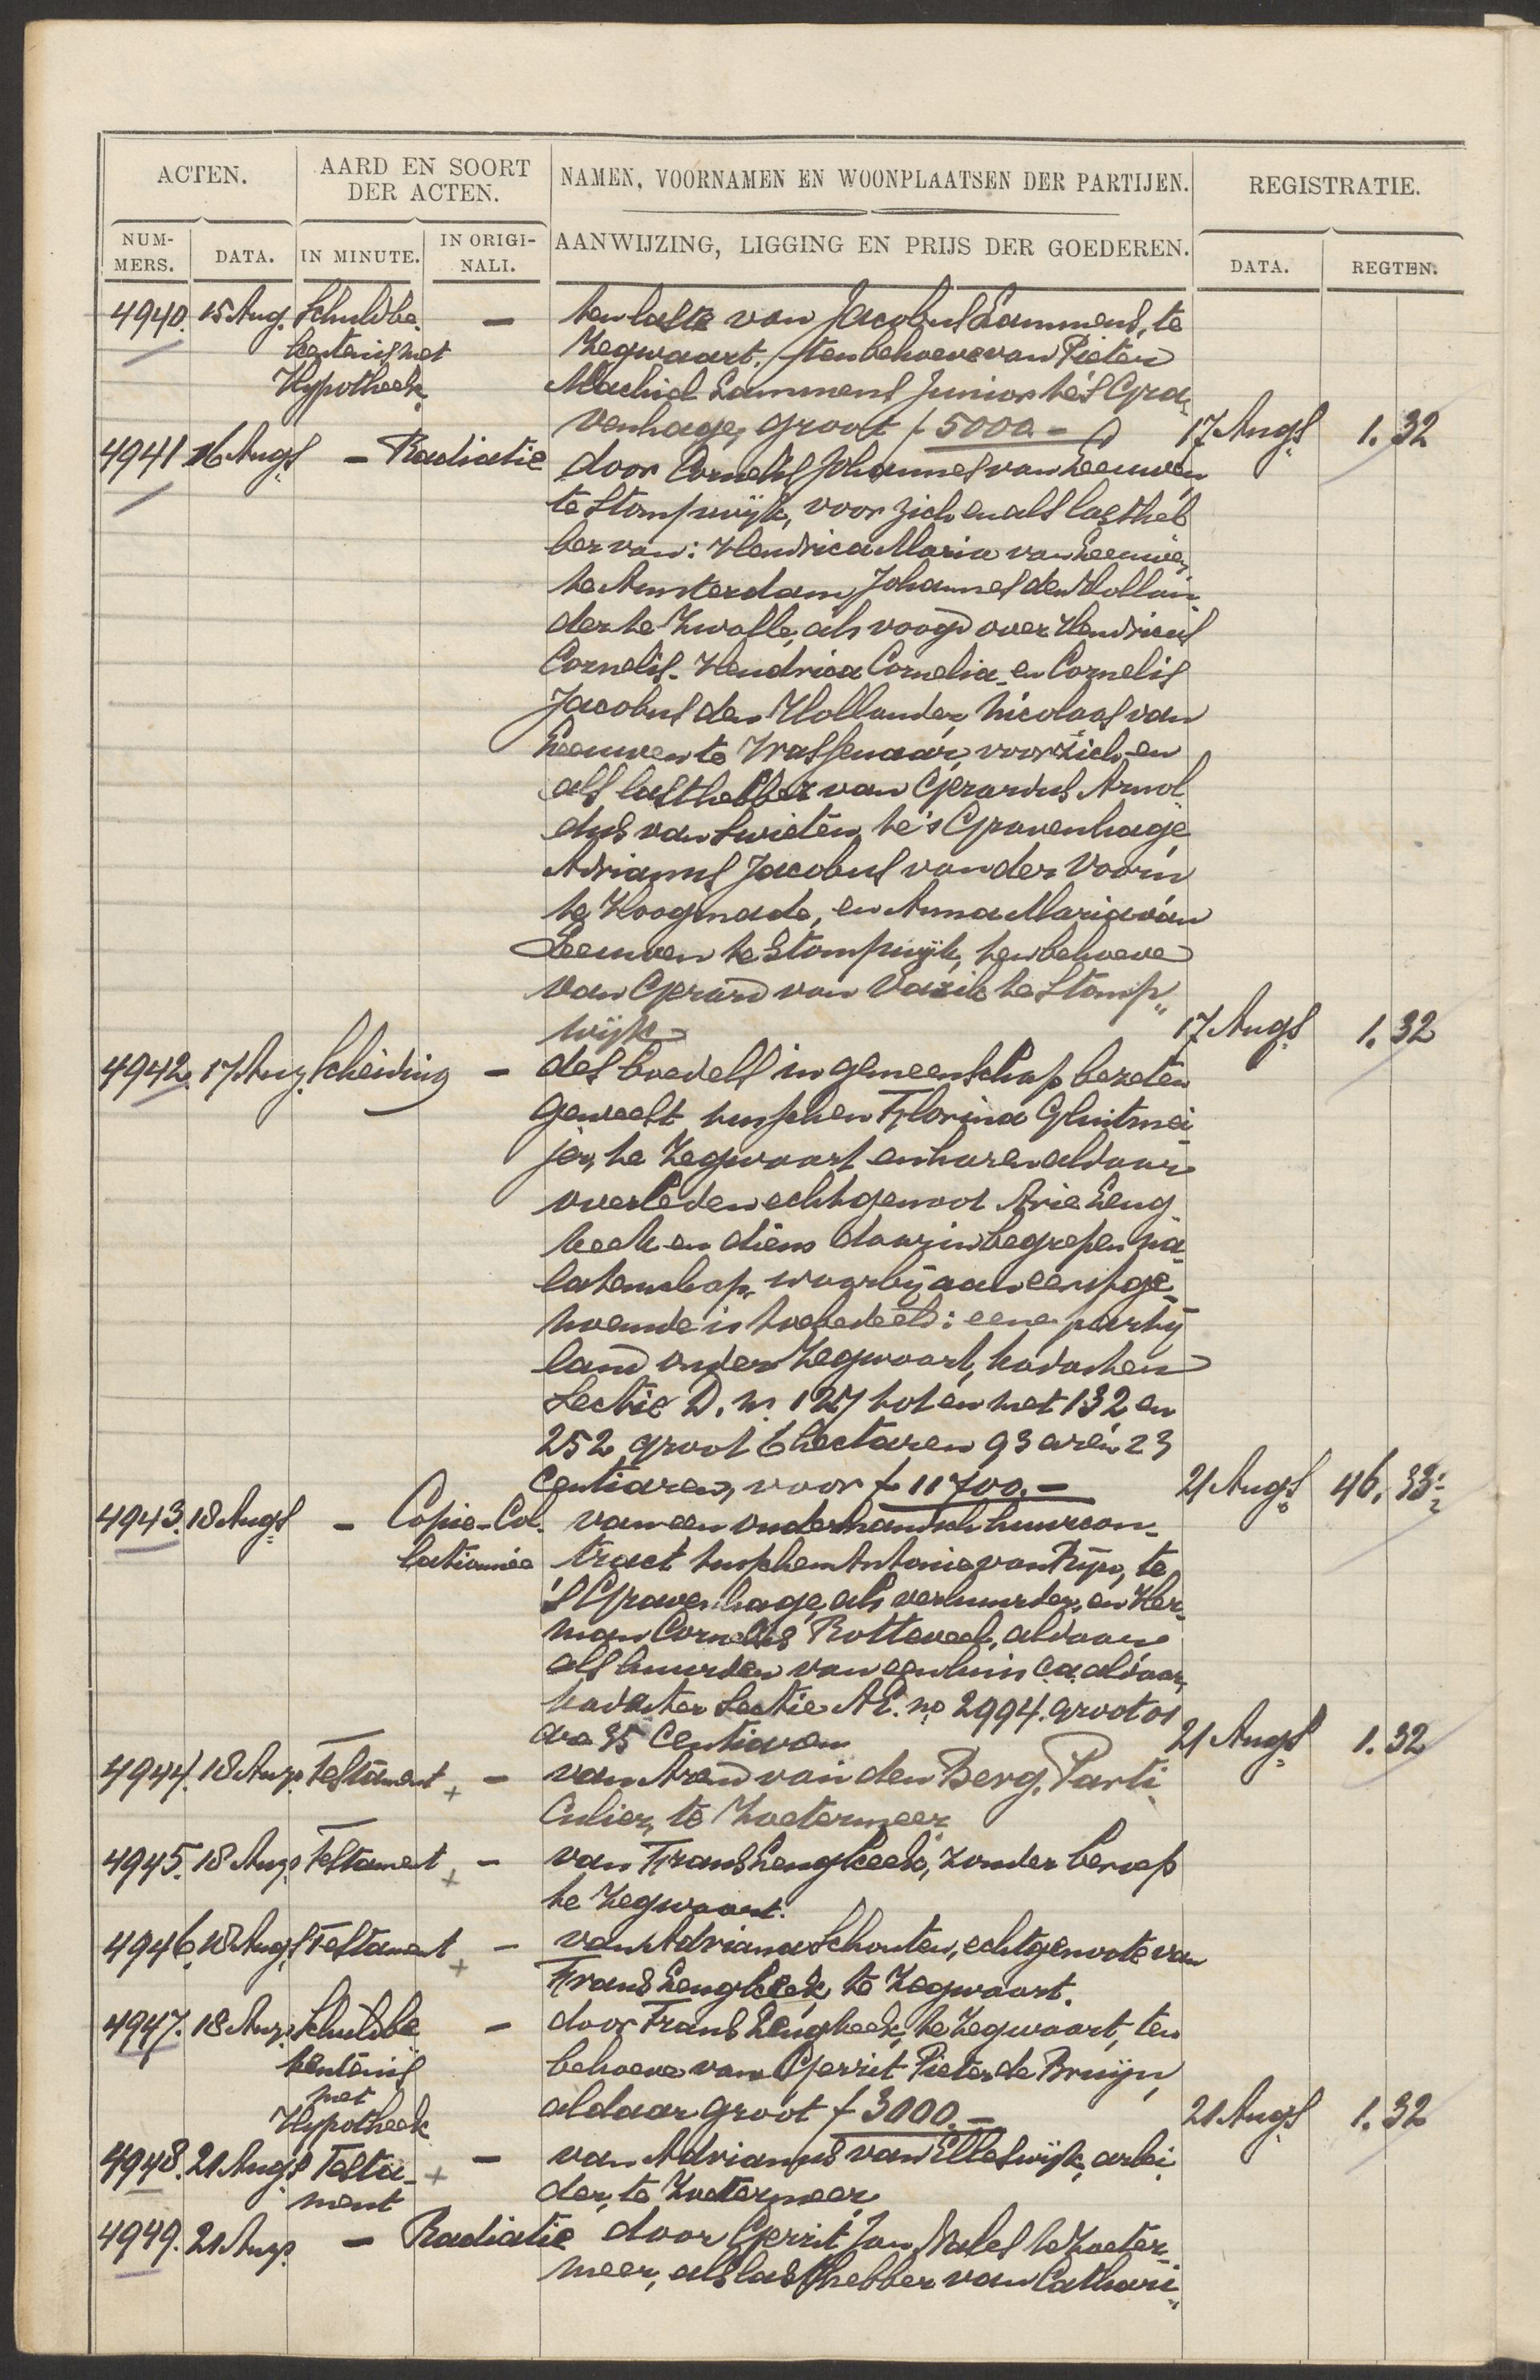 ACTEN.
AARD EN SOORT
DER ACTEN.
NAMEN, VOORNAMEN EN WOONPLAATSEN DER PARTIJEN.
REGISTRATIE.
NUM-
MERS.
DATA.
IN MINUTE.
IN ORIGI-
NALI.
AANWIJZING, LIGGING EN PRIJS DER GOEDEREN.
DATA.
REGTEN.
4940. 15 Aug. Schuldbe- — ten laste van Jacobus Lammens, te
kentenis met Zegwaart, ten behoeve van Pieter
Hypotheek. Machiel Lammens Junior te 's Gra-
venhage, groot f 5000.- 17 Augs 1. 32
4941 16 Augs — Radiatie door Cornelis Johannes van Leeuwen
te Stompwijk, voor zich en als lastheb
ber van: Hendrica Maria van Leeuwen
te Amsterdam, Johannes den Hollan-
der te Zwolle, als voogd over Hendricus
Cornelis, Hendrica Cornelia en Cornelis
Jacobus den Hollander, Nicolaas van
Leeuwen te Wassenaar, voor zich en
als lasthebber van Gerardus Arnol-
dus van Swieten te 's Gravenhage,
Adrianus Jacobus van der Voorn
te Hoogmade, en Anna Maria van
Leeuwen te Stompwijk, ten behoeve
van Gerard van te Stomp„
wijk 17 Augs 1. 32
4942. 17 Aug. Scheiding — des boedels in gemeenschap bezeten
geweest tusschen Florina Gluitmei-
jer, te Zegwaart en haren aldaar
overleden echtgenoot Arie Leng
keek en diens daarin begrepen na-
latenschap, waarbij aan eerstge-
noemde is toebedeeld: eene partij
land onder Zegwaart, kadaster
Sectie D. no. 127 tot en met 132 en
252, groot 6 hectaren 93 aren 23
centiaren, voor f 11700.- 21 Augs 46. 33½
4943. 18 Augs — Copie-Col- van een onderhandsch huurcon-
lationnée tract tusschen Antonie van Rijn, te
's Gravenhage, als verhuurder, en Her-
man Cornelis Rotteveel, aldaar
als huurder van een huis c.a. aldaar,
kadaster Sectie AE. no 2994. groot 01
are 35 centiaren 21 Augs 1. 32
4944. 18 Augs. Testament + — van Arend van den Berg, Parti-
culier, te Zoetermeer
4945. 18 Augs. Testament + — van Frans Lengkeek, zonder beroep
te Zegwaart.
4946. 18 Augs. Testament + — van Adriana Schouten, echtgenoote van
Frans Lengkeek, te Zegwaart.
4947. 18 Augs. Schuldbe — door Frans Lengkeek, te Zegwaart, ten
kentenis behoeve van Gerrit Pieter de Bruijn,
met
Hypotheek aldaar groot f 3000.- 21 Augs 1. 32
4948. 21 Augs Testa- + — van Adrianus van Elleswijk, arbei-
ment der, te Zoetermeer
4949. 21 Augs. — Radiatie door Gerrit Jan te Zoeter-
meer, als lasthebber van Cathari„